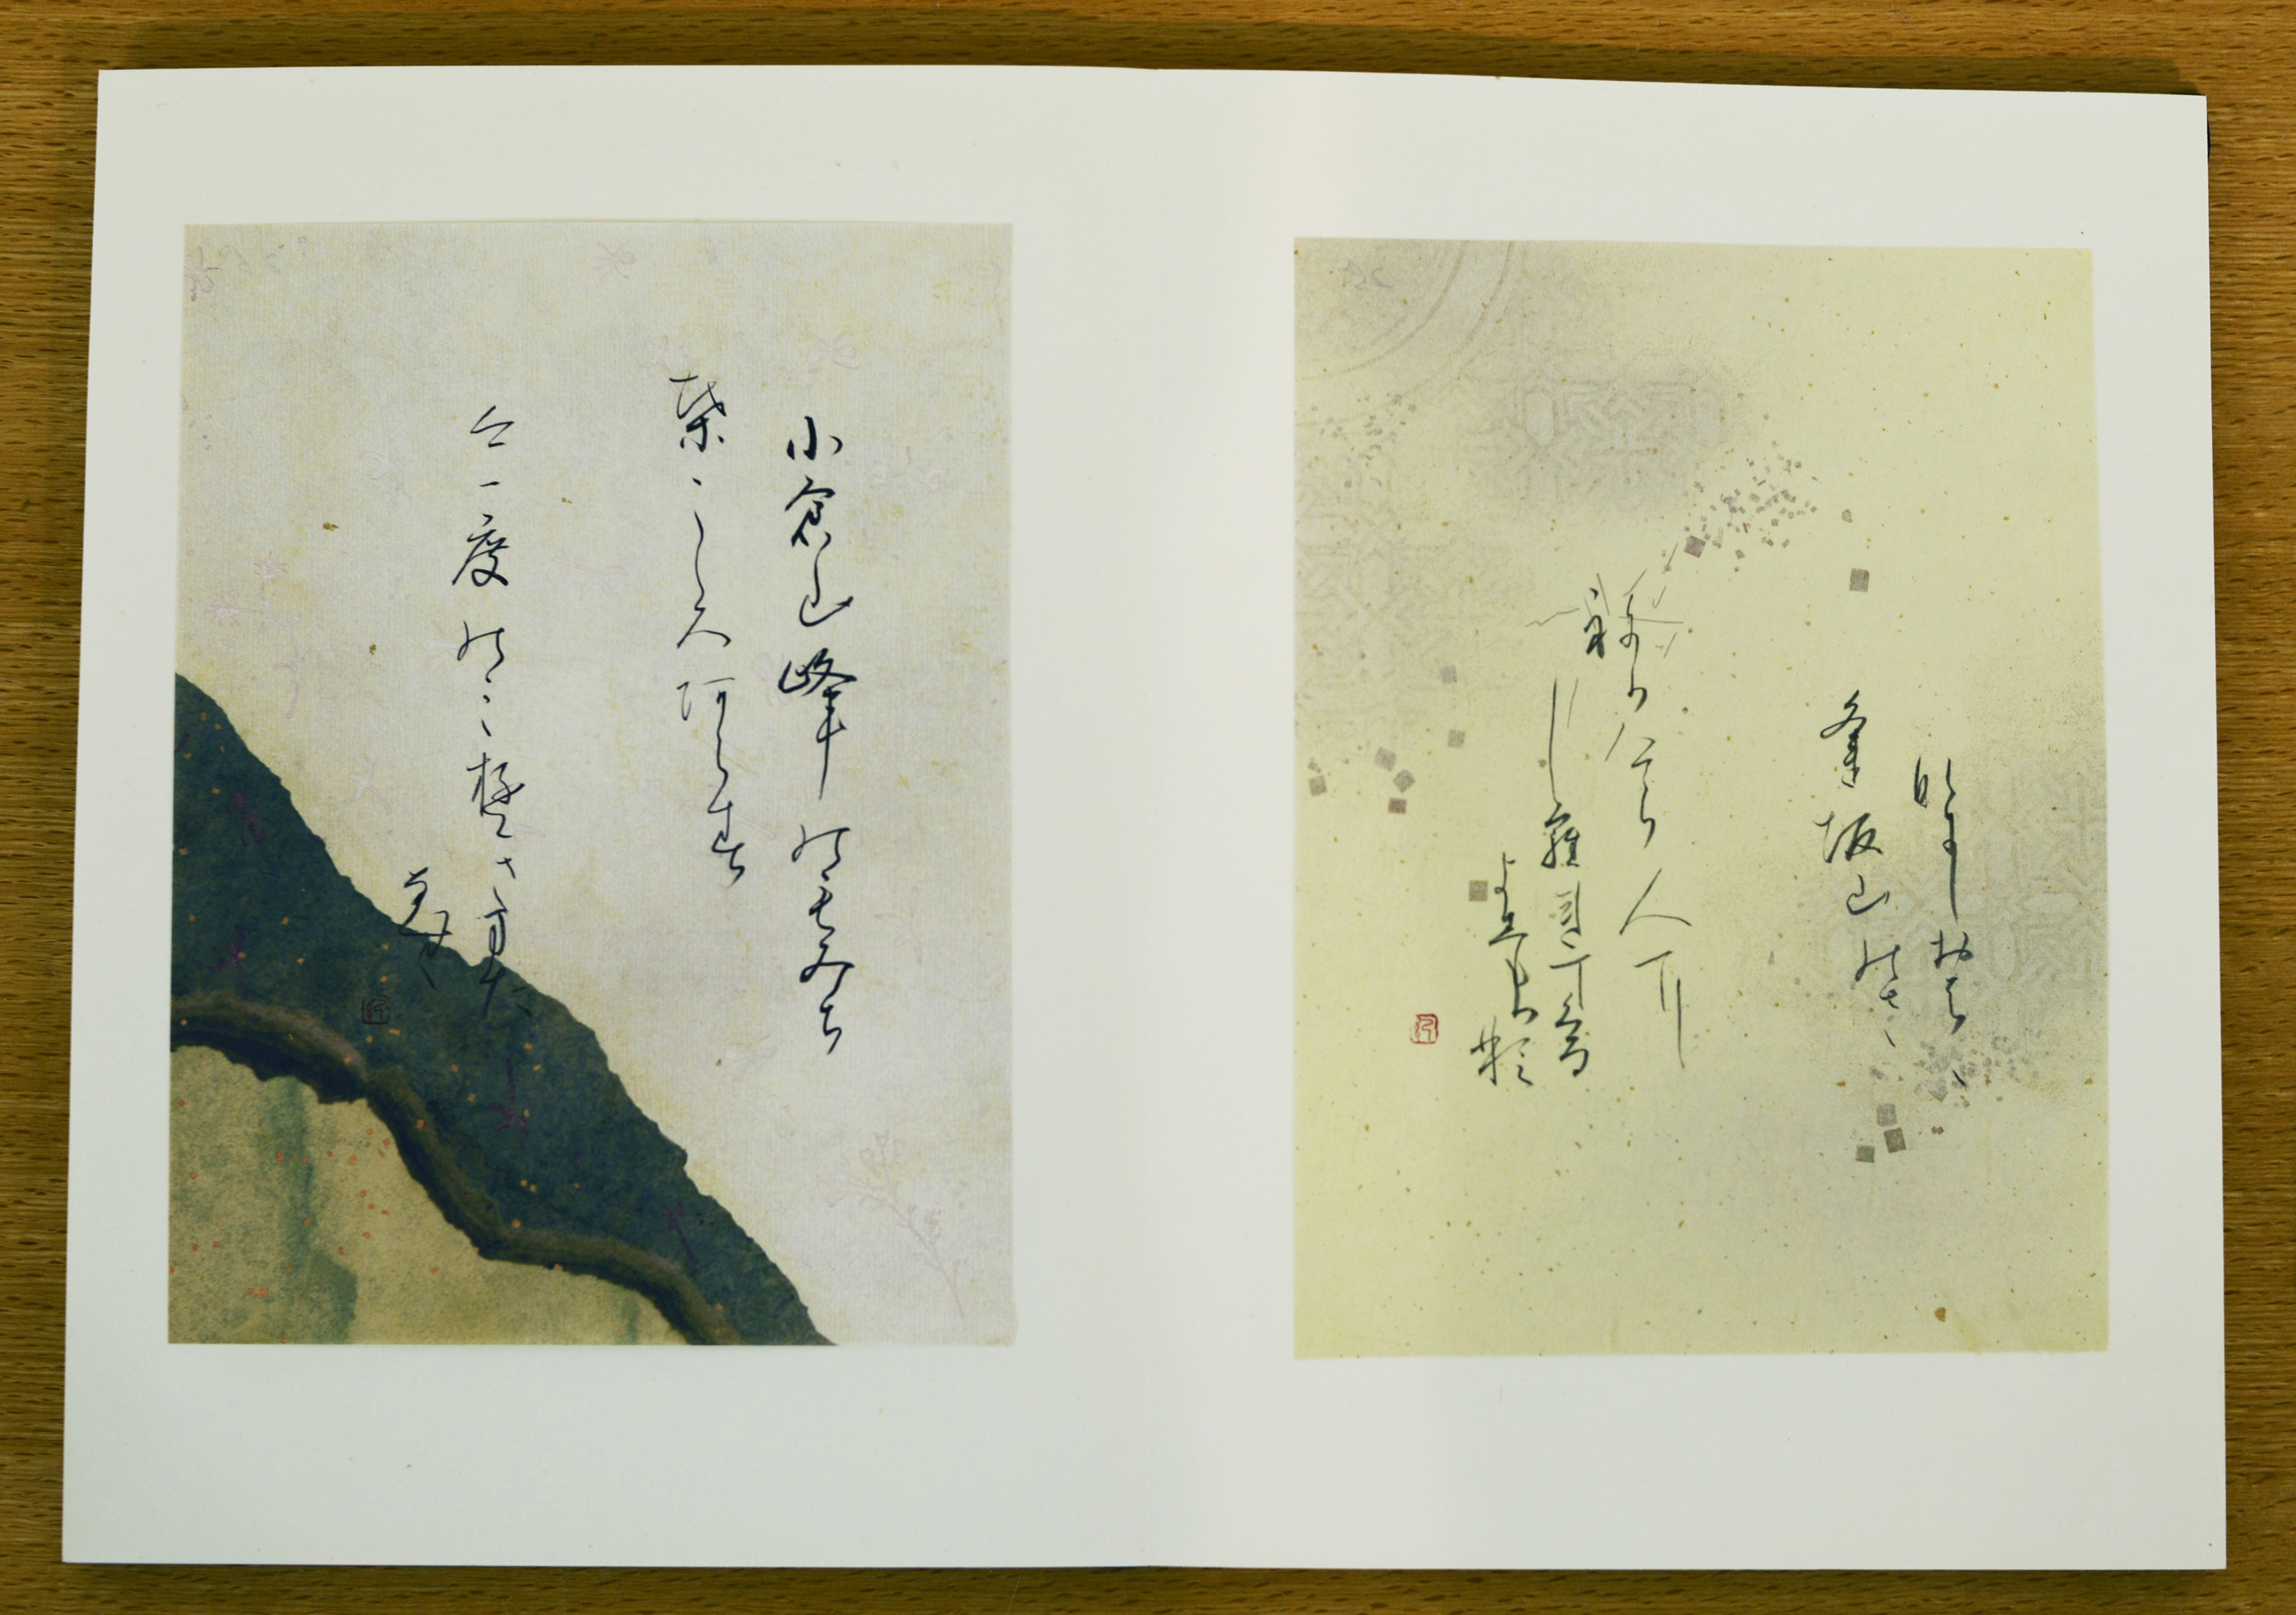 名にしおはゝ
逢坂山のさ
ねかつら人に
しられてくる
よしもか那
小倉山峰のもみち
葉こゝろ阿らは
今一度のみゆきまた
なむ